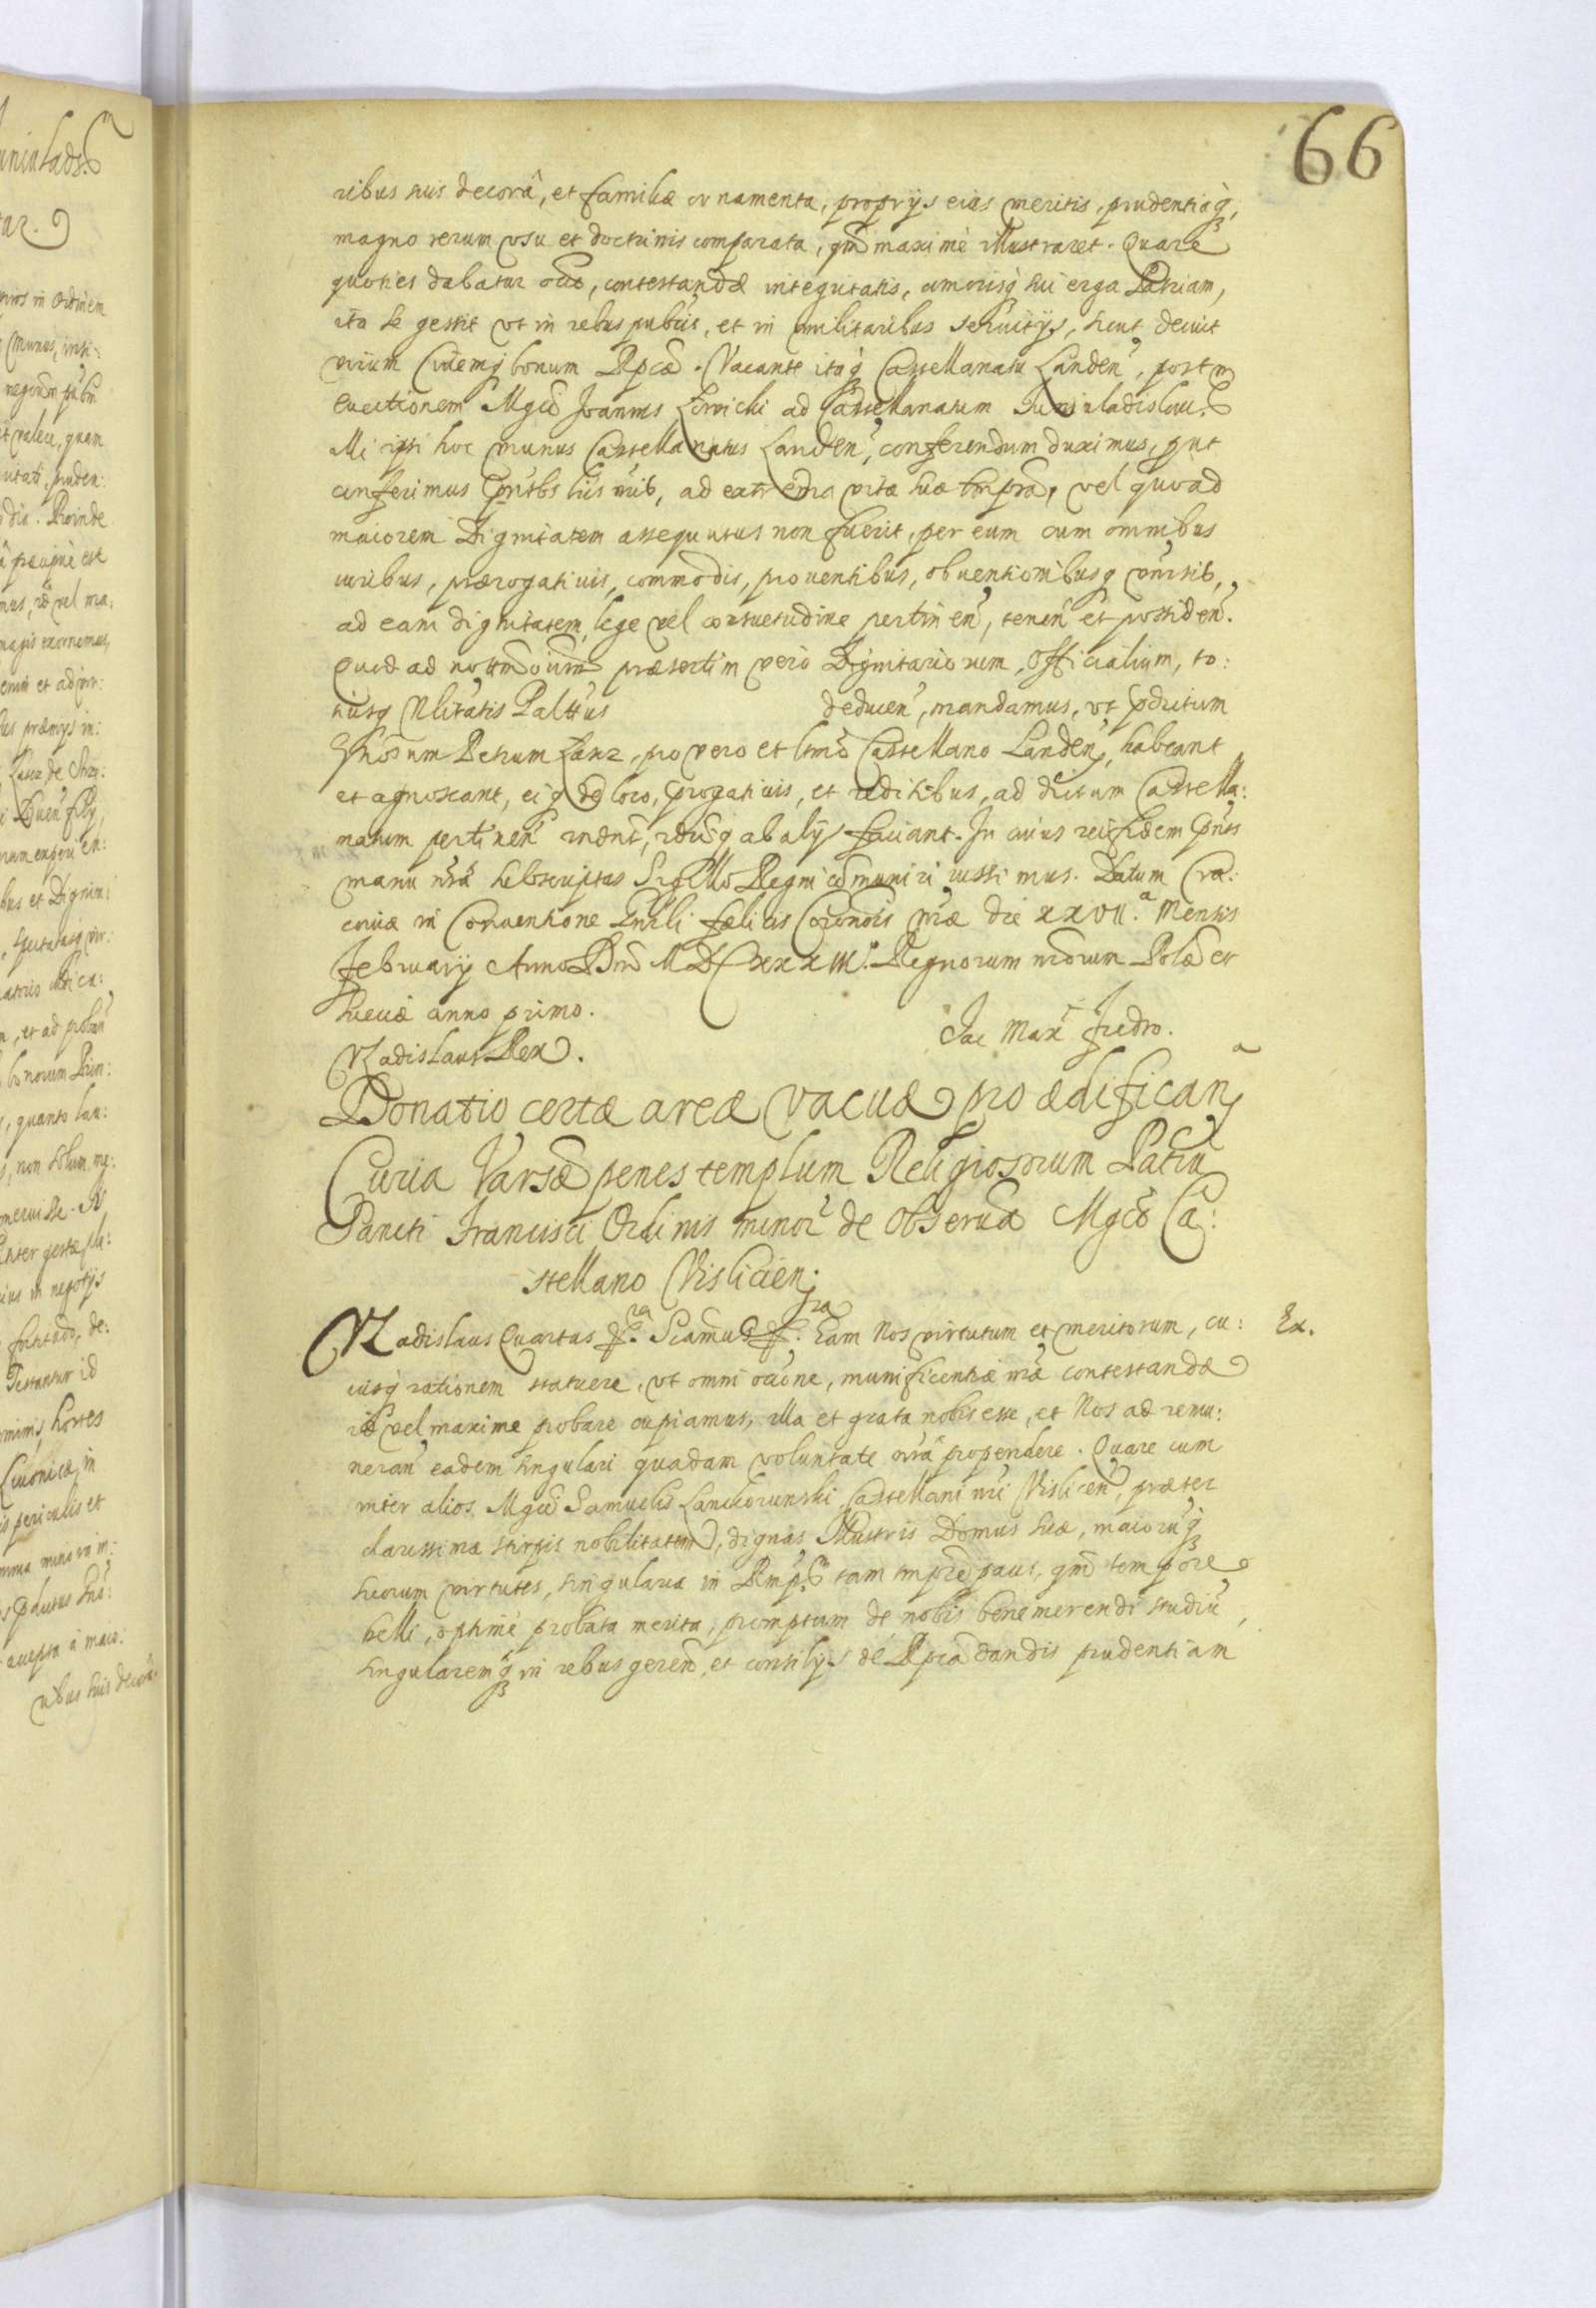 66
ribus suis decorâ, et familiæ ornamenta, proprijs eius meritis, prudentiaq̃,
magno rerum vsu et doctrinis comparata, qm̃ maximè illustraret. Quare
quoties dabatur occ̃o, contestandæ integritatis, amorisq̃ sui erga Patriam,
ita se gessit vt in rebus pub̃cis, et in militaribus seruitijs, sicut decuit
virum Ciuemq̃ bonum Rpcæ. Vacante itaq̃ Castellanatu Landeñ, post
euectionem Mgcĩ Joannis Lowicki ad Castellanatum Juniuladislau.
illi ipsi hoc munus Castellanatus Landeñ, conferendum duximus, put
conferimus p̃ntibs l̃ris ñris, ad extrema vitæ suæ tmpra, vel quoad
maiorem Dignitatem assequutus non fuerit, per eum cum omnibus
iuribus, prærogatiuis, commodis, prouentibus, obuentionibusq̃ vniũsis,
ad eam dignitatem, lege vel consuetudine pertineñ, teneñ et possideñ.
Quod ad notitiam oĩum præsertim vero Dignitariorum, Officialium, to:
tiusq̃ Nlitatis Palttus deduceñ, mandamus, vt p̃dictum
Gñosum Petrum Łasz, pro vero et ltmõ Castellano Landeñ, habeant
et agnoscant, eiq̃ de loco, p̃rogatiuis, et reditibus, ad dictum Castella:
natum pertineñ rñdnt, rderiq̃ ab alijs faciant. In cuius rei fidem p̃ntes
manu ñra subscriptas Sigillo Regni cõmuniri iussimus. Datum Cra:
couiæ in Conuentione Gnrli fælicis Coronõis ñræ die XXVII.a Mensis
February Anno Dnĩ MDCXXXIII. Regnorum nrõrum Polæ et
Sueciæ anno primo.
Vladislaus Rex. Jac Max Fredro.
Donatio certæ areæ vacuæ pro ædifican̄
Curia Varsæ penes templum Religiosorum Patrũ
Sancti Francisci Ordinis minor de Obseruã Mgcõ Ca:
stellano Visliciẽn.
Vladislaus Quartus &. Scamus &. Eam Nos virtutum et meritorum, cu: Ex.
iusq̃ rationem statuere, vt omni occ̃one, munificentiæ ñræ contestandæ
id vel maxime probare cupiamus, illa et grata nobis esse, et Nos ad remu:
nerañ eadem singulari quadam voluntate ñra propendere. Quare cum
inter alios Mgcĩ Samuelis Lanckorunski Castellani ñri Visliceñ, præter
clarissimæ stirpis nobilitatem, dignas Illustris Domus suæ, maiorũq̃
suorum virtutes, singularia in Rmp. tam tmpre pacis, qm̃ tempore
belli, optimè probata merita, promptum de nobis benemerendi studiũ,
singularemq̃ in rebus gereñ, et consilijs de Rpca dandis prudentiam